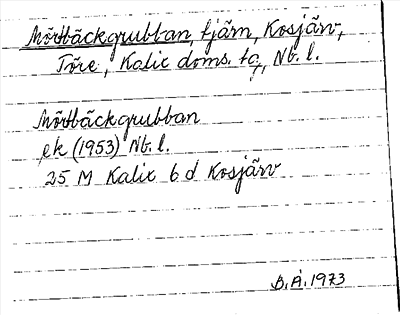 Mörtbäckgrubban, tjärn, Kosjärv,
Töre, Kalix doms. tg, Nb. l.
Mörtbäckgrubban
ek (1953) Nb. l.
25 M Kalix 6 d Kosjärv
B.Å. 1973